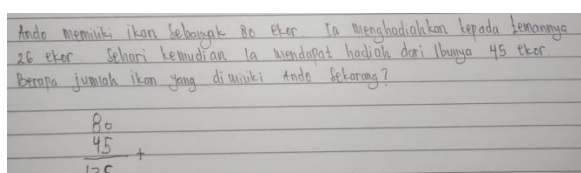 Ando memiliki ikan Sebanyak 80 ekor. Ia menghadiahkan kepada temannya
26 ekor. Sehari kemudian Ia mendapat hadiah dari Ibunya 45 ekor.
Berapa jumlah ikan yang dimiliki Ando Sekarang?
80
45
+
125